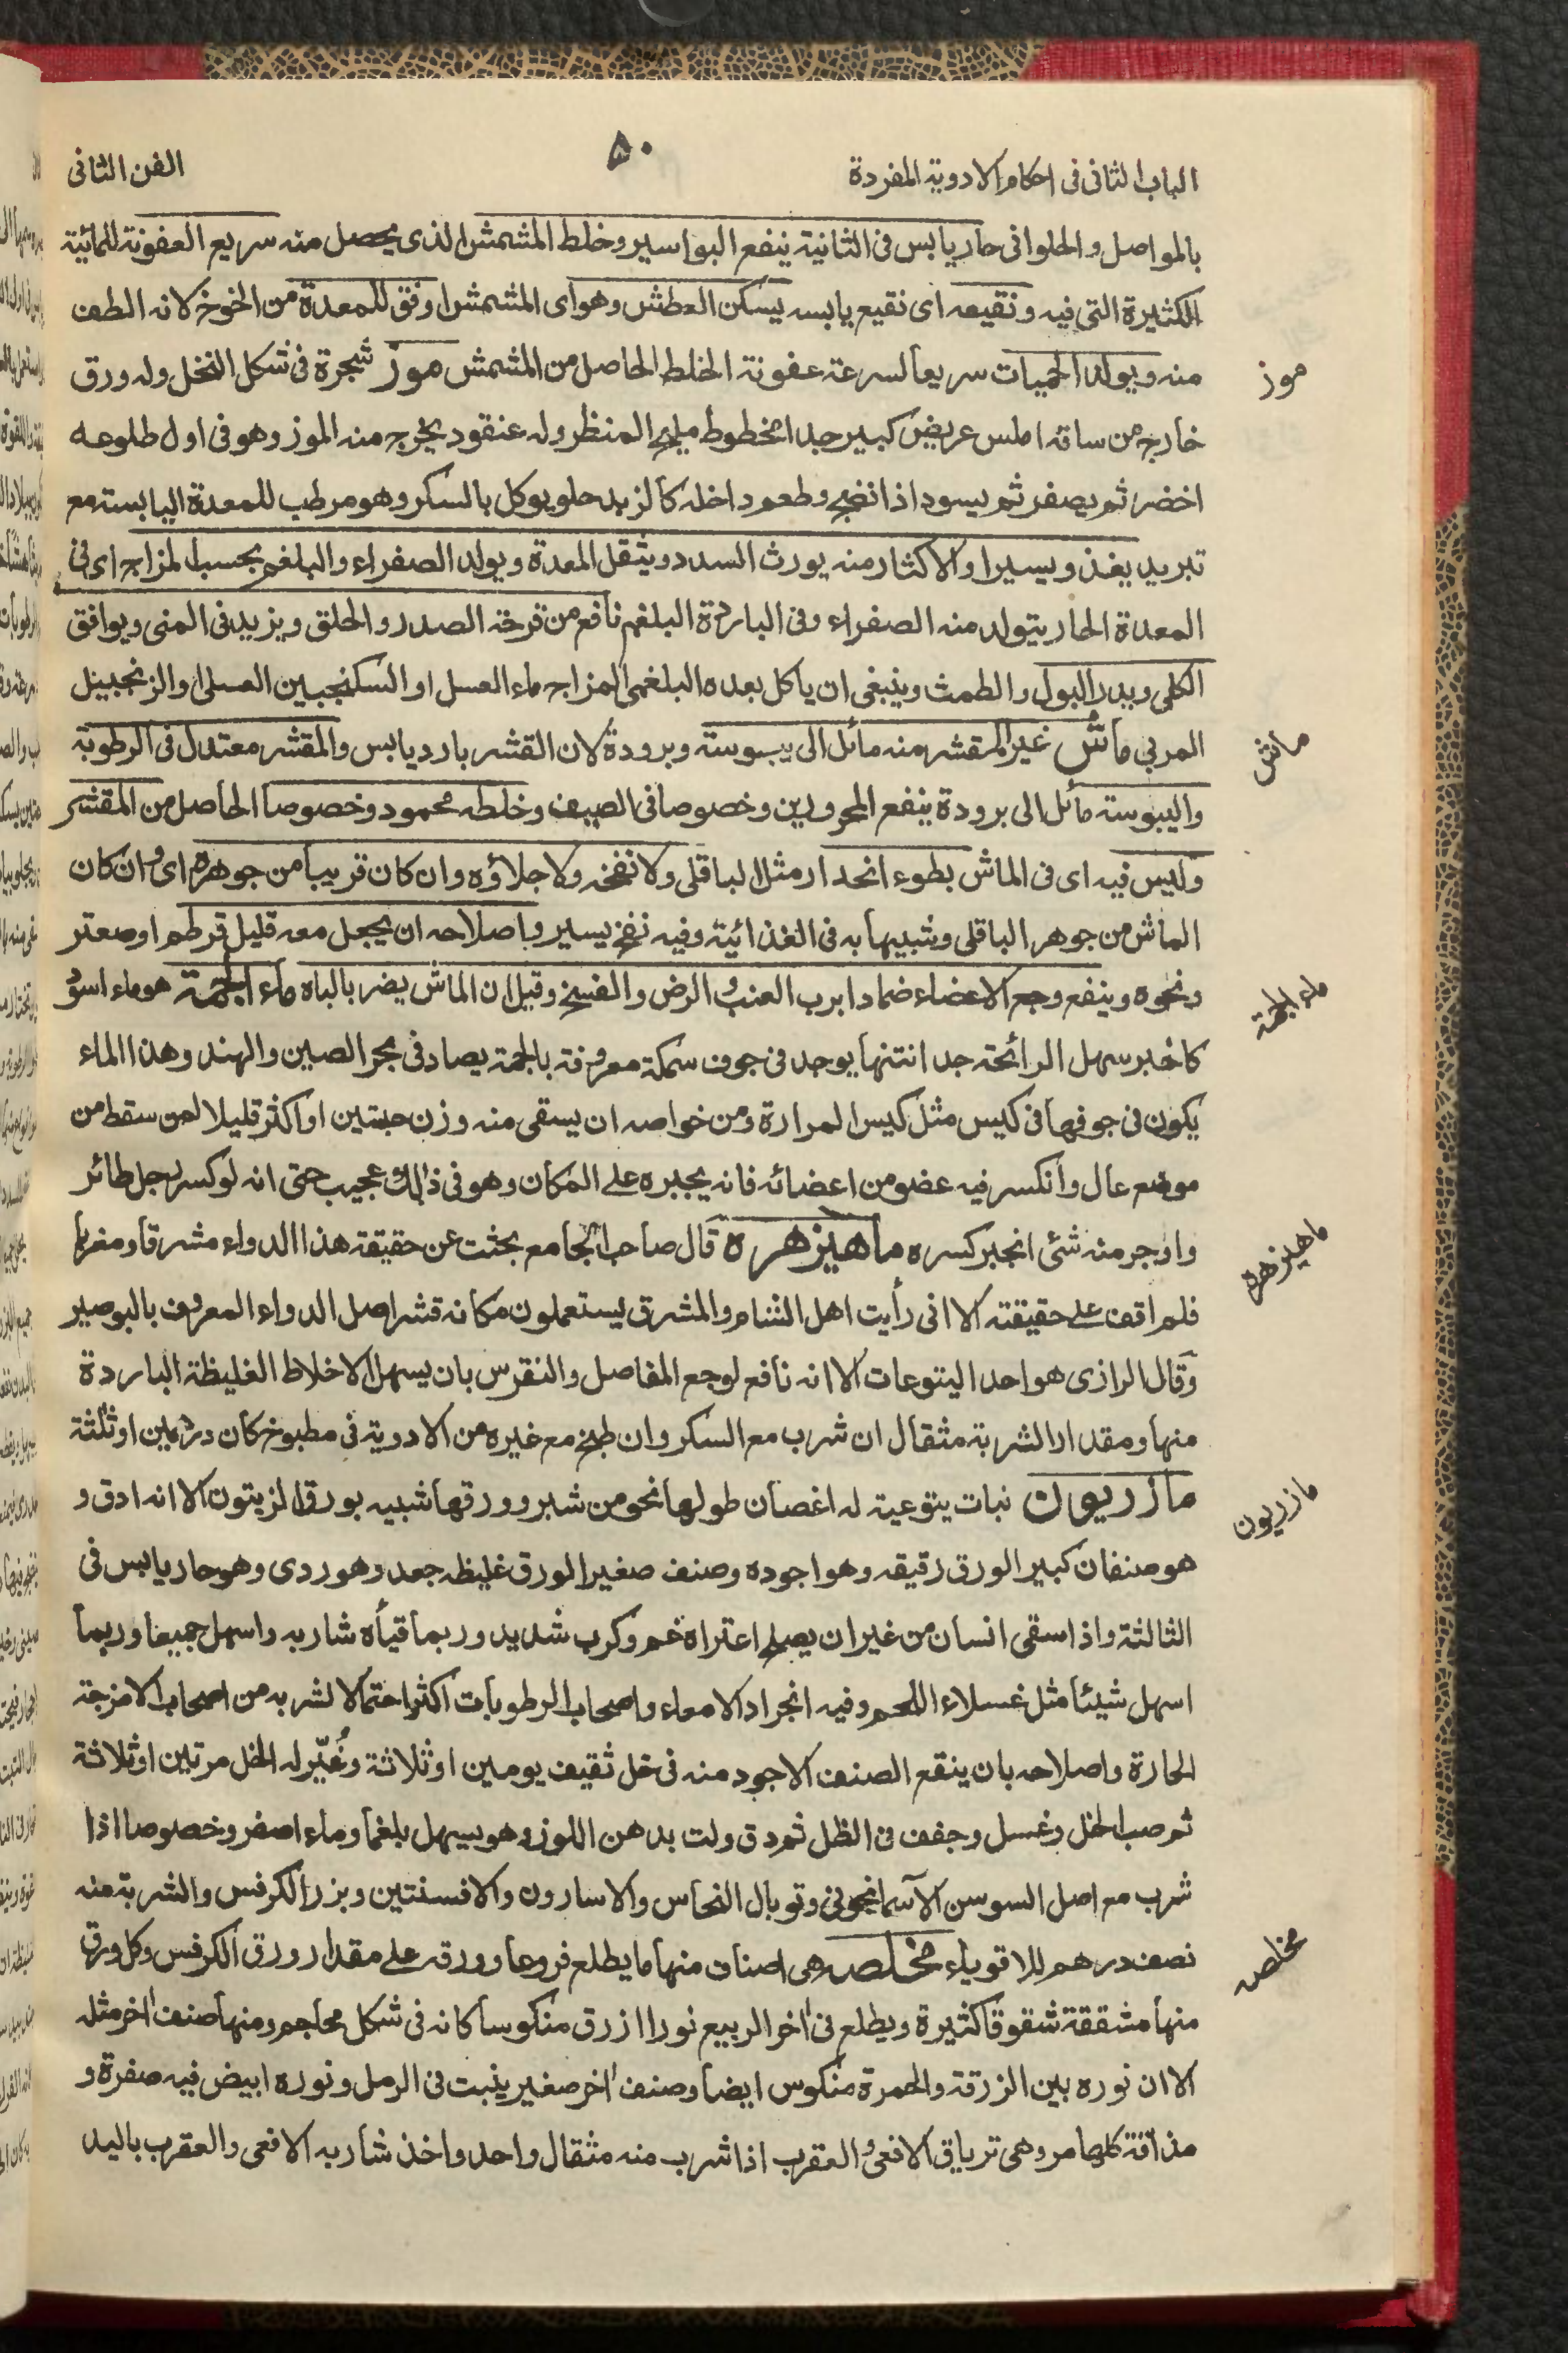 الباب الثانى فى احكام الادوية المفردة
٥٠
الفن الثانى
بالمواصل والحلوانى حار يابس فى الثانية ينفع البواسير وخلط المشمش الذى يحصل منه سريع العفونة للمائية
الكثيرة التى فيه ونقيعه اى نقيع يابسه يسكن العطش وهو اى المشمش اوفق للمعدة من الخوخ لانه الطف
منه ويولد الحميات سريعا لسرعة عفونة الخلط الحاصل من المشمش موز شجرة فى شكل النخل وله ورق
موز
خارج من ساقه املس عريض كبير جدا مخطوط مليح المنظر وله عنقود يخرج منه الموز وهو فى اول طلوعه
اخضر ثم يصفر ثم يسود اذا نضج وطعم داخله كالزبد حلو يوكل بالسكر وهو مرطب للمعدة اليابسة مع
تبريد يغذو يسيرا والاكثار منه يورث السدد ويثقل المعدة ويولد الصفراء والبلغم بحسب المزاج اى فى
المعدة الحار يتولد منه الصفراء وفى الباردة البلغم نافع من قرحة الصدر والحلق ويزيد فى المنى ويوافق
الكلى ويدر البول والطمث وينبغى ان ياكل بعده البلغمى المزاج ماء العسل او السكنجبين العسلى او الزنجبيل
المربى ماش غير المقشر منه مائل الى يبوسة وبرودة لان القشر بارد يابس والمقشر معتدل فى الرطوبة
ماش
واليبوسة مائل الى برودة ينفع المحرورين وخصوصا فى الصيف وخلطه محمود وخصوصا الحاصل من المقشر
وليس فيه اى فى الماش بطوء انحدار مثل الباقلى ولا نفخه ولا جلاؤه وان كان قريبا من جوهره اى وان كان
الماش من جوهر الباقلى وشبيها به فى الغذائية وفيه نفخ يسير واصلاحه ان يجعل معه قليل قرطم او صعتر
ونحوه وينفع وجع الاعضاء ضمادا برب العنب والرض والفسخ وقيل ان الماش يضر بالباه ماء الجمة هو ماء اسود
ماء الجمة
كالحبر سهل الرائحة جدا انتنها يوجد فى جوف سمكة معروفة بالجمة يصاد فى بحر الصين والهند وهذا الماء
يكون فى جوفها فى كيس مثل كيس المرارة ومن خواصه ان يسقى منه وزن حبتين او اكثر قليلا لمن سقط من
موضع عال وانكسر فيه عضو من اعضائه فانه يجبره على المكان وهو فى ذالك عجيب حتى انه لو كسر رجل طائر
واوجر منه شئ انجبر كسره ماهيزهره قال صاحب الجامع بحثت عن حقيقة هذا الدواء مشرقا ومغربا
ماهيزهره
فلم اقف على حقيقته الا انى رأيت اهل الشام والمشرق يستعملون مكانه قشر اصل الدواء المعروف بالبوصير
وقال الرازى هو احد اليتوعات الا انه نافع لوجع المفاصل والنقرس بان يسهل الاخلاط الغليظة الباردة
منها ومقدار الشربة مثقال ان شرب مع السكر وان طبخ مع غيره من الادوية فى مطبوخ كان درهمين او ثلثة
مازريون نبات يتوعية له اغصان طولها نحو من شبر وورقها شبيه بورق الزيتون الا انه ادق و
مازريون
هو صنفان كبير الورق رقيقه وهو اجوده وصنف صغير الورق غليظه جعد وهو ردى وهو حار يابس فى
الثالثة واذا سقى انسان من غير ان يصلح اعتراه غم وكرب شديد وربما قيأه شاربه واسهل جميعا وربما
اسهل شيئا مثل غسلاء اللحم وفيه انجراد الامعاء واصحاب الرطوبات اكثر احتمالا لشربه من اصحاب الامزجة
الحارة واصلاحه بان ينقع الصنف الاجود منه فى خل ثقيف يومين او ثلاثة وغُيّر له الخل مرتين او ثلاثة
ثم صب الخل وغسل وجفف فى الظل ثم دق ولت بدهن اللوز وهو يسهل بلغما وماء اصفر وخصوصا اذا
شرب مع اصل السوسن الآسمانجونى وتوبال النحاس والاسارون والافسنتين وبزر الكرفس والشربة منه
نصف درهم للاقوياء مخلصه هى اصناف منها ما يطلع فروعا وورقه على مقدار ورق الكرفس وكل ورق
مخلصه
منها مشققة شقوقا كثيرة ويطلع فى اخر الربيع نورا ازرق منكوسا كانه فى شكل محاجم ومنها صنف اخر مثله
الا ان نوره بين الزرقة والحمرة منكوس ايضا وصنف اخر صغير ينبت فى الرمل ونوره ابيض فيه صفرة و
مذاقة كلها مر وهى ترياق الافعى والعقرب اذا شرب منه مثقال واحد واخذ شاربه الافعى والعقرب باليد